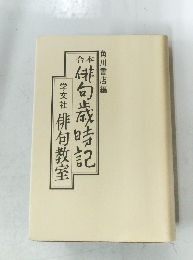 角川書店編
合本
俳句歳時記
学文社
俳句教室